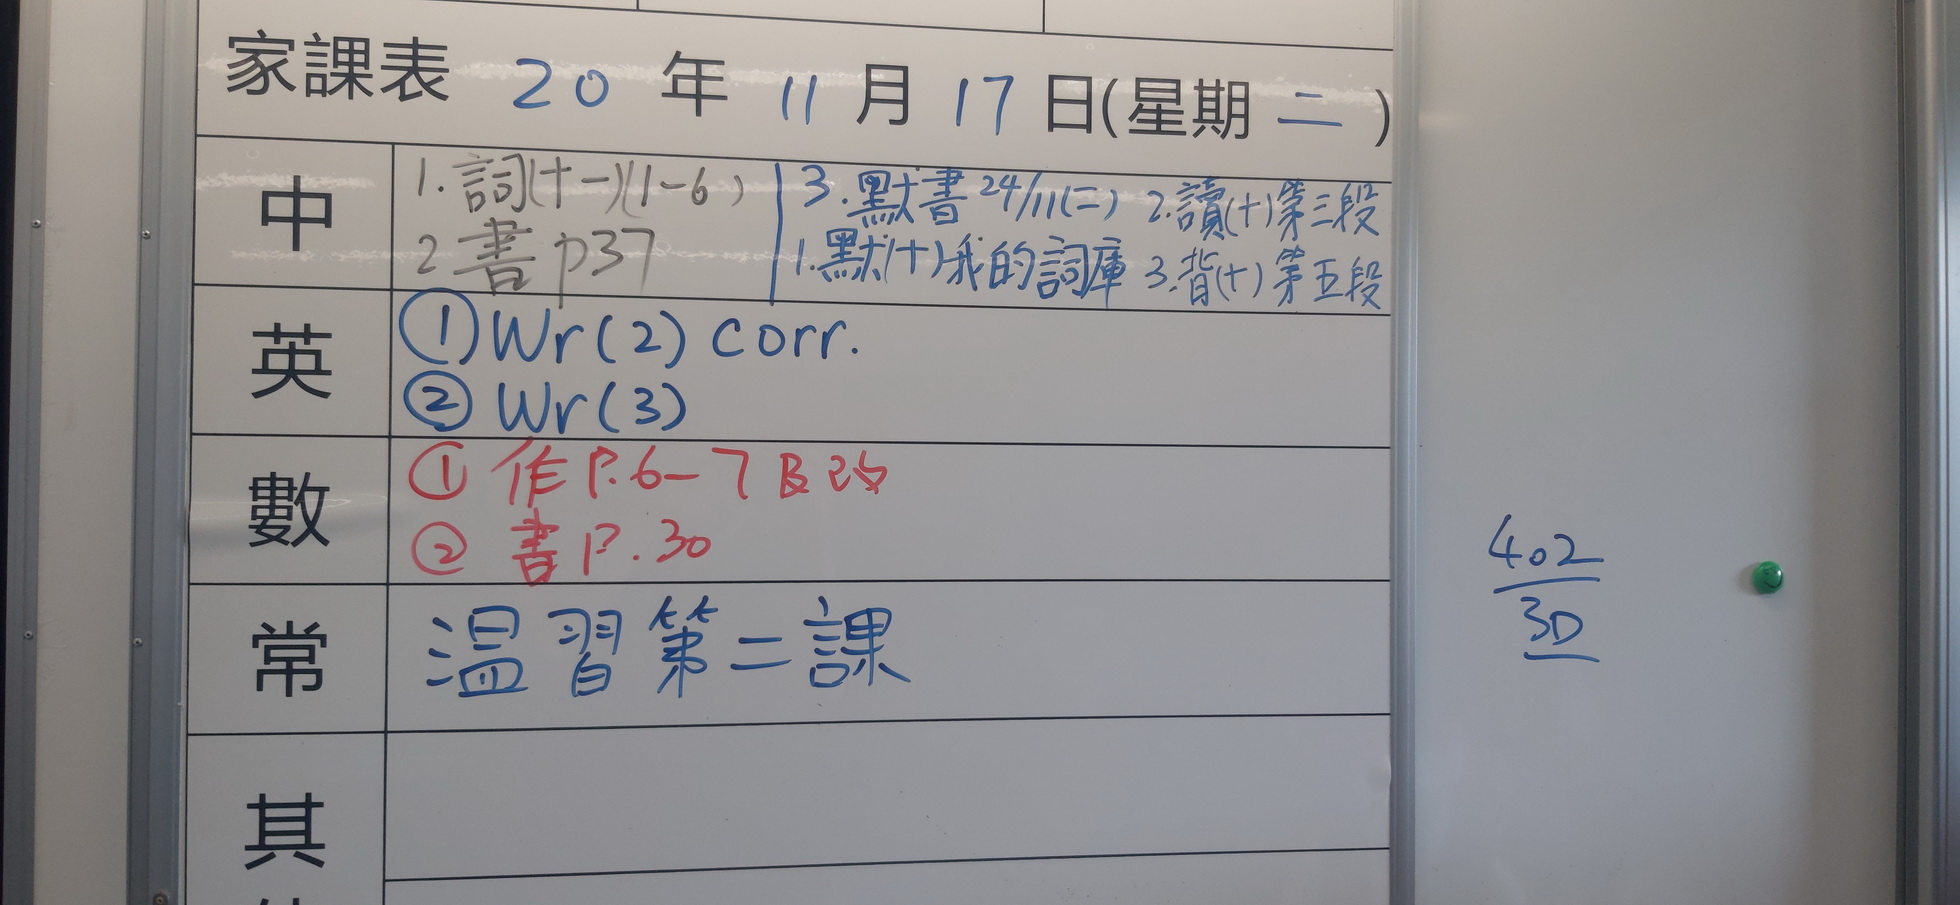 家課表 20 年 11 月 17 日(星期 二 )
中
1. 詞(十一)(1-6)
2 書 p37
3. 默書 24/11(二)
1. 默(十)我的詞庫
2. 讀(十)第三段
3. 背(十)第五段
英
① Wr(2) corr.
② Wr(3)
數
① 作 P.6-7 及改
② 書 P.30
常
温習第二課
其
402
3D